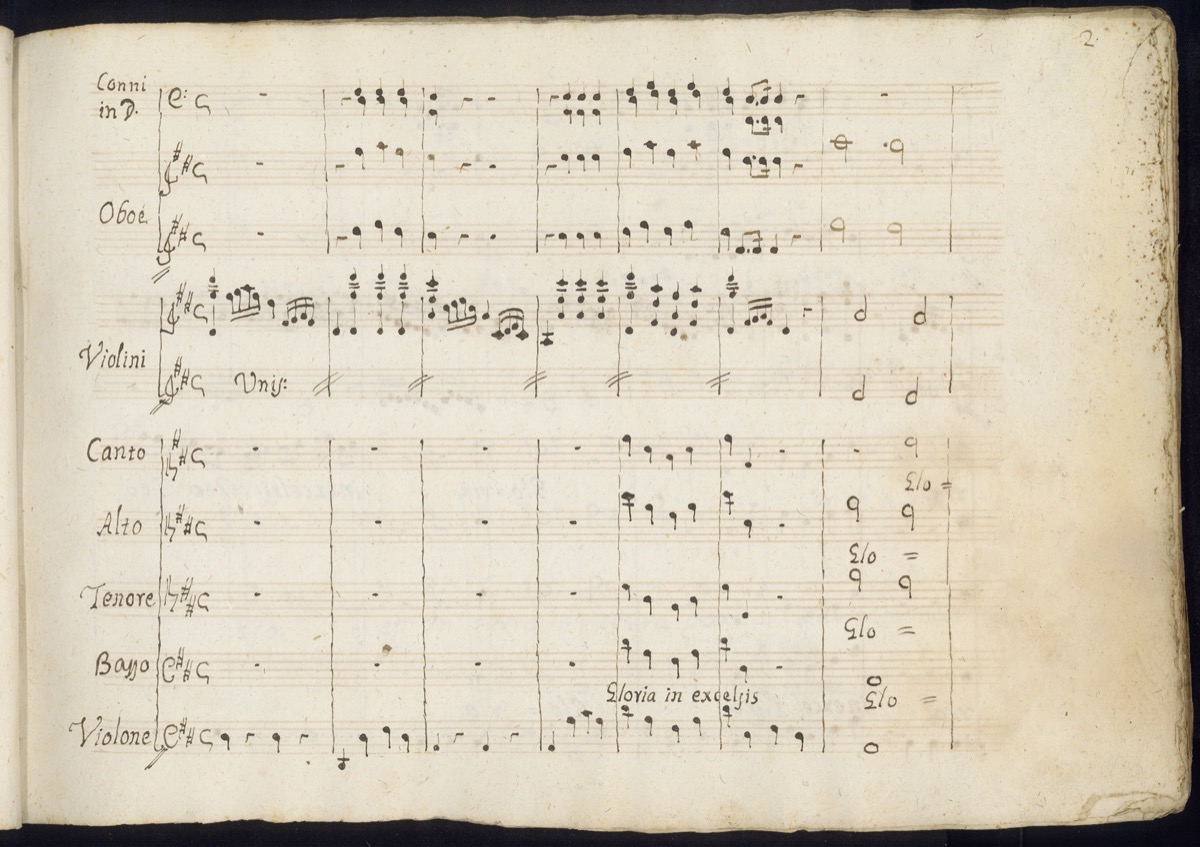 2.
Conni
in D.
Oboé
Violini
Unis:
Canto
Glo =
Alto
Glo =
Tenore
Glo =
Basso
Gloria in excelsis
Glo =
Violone